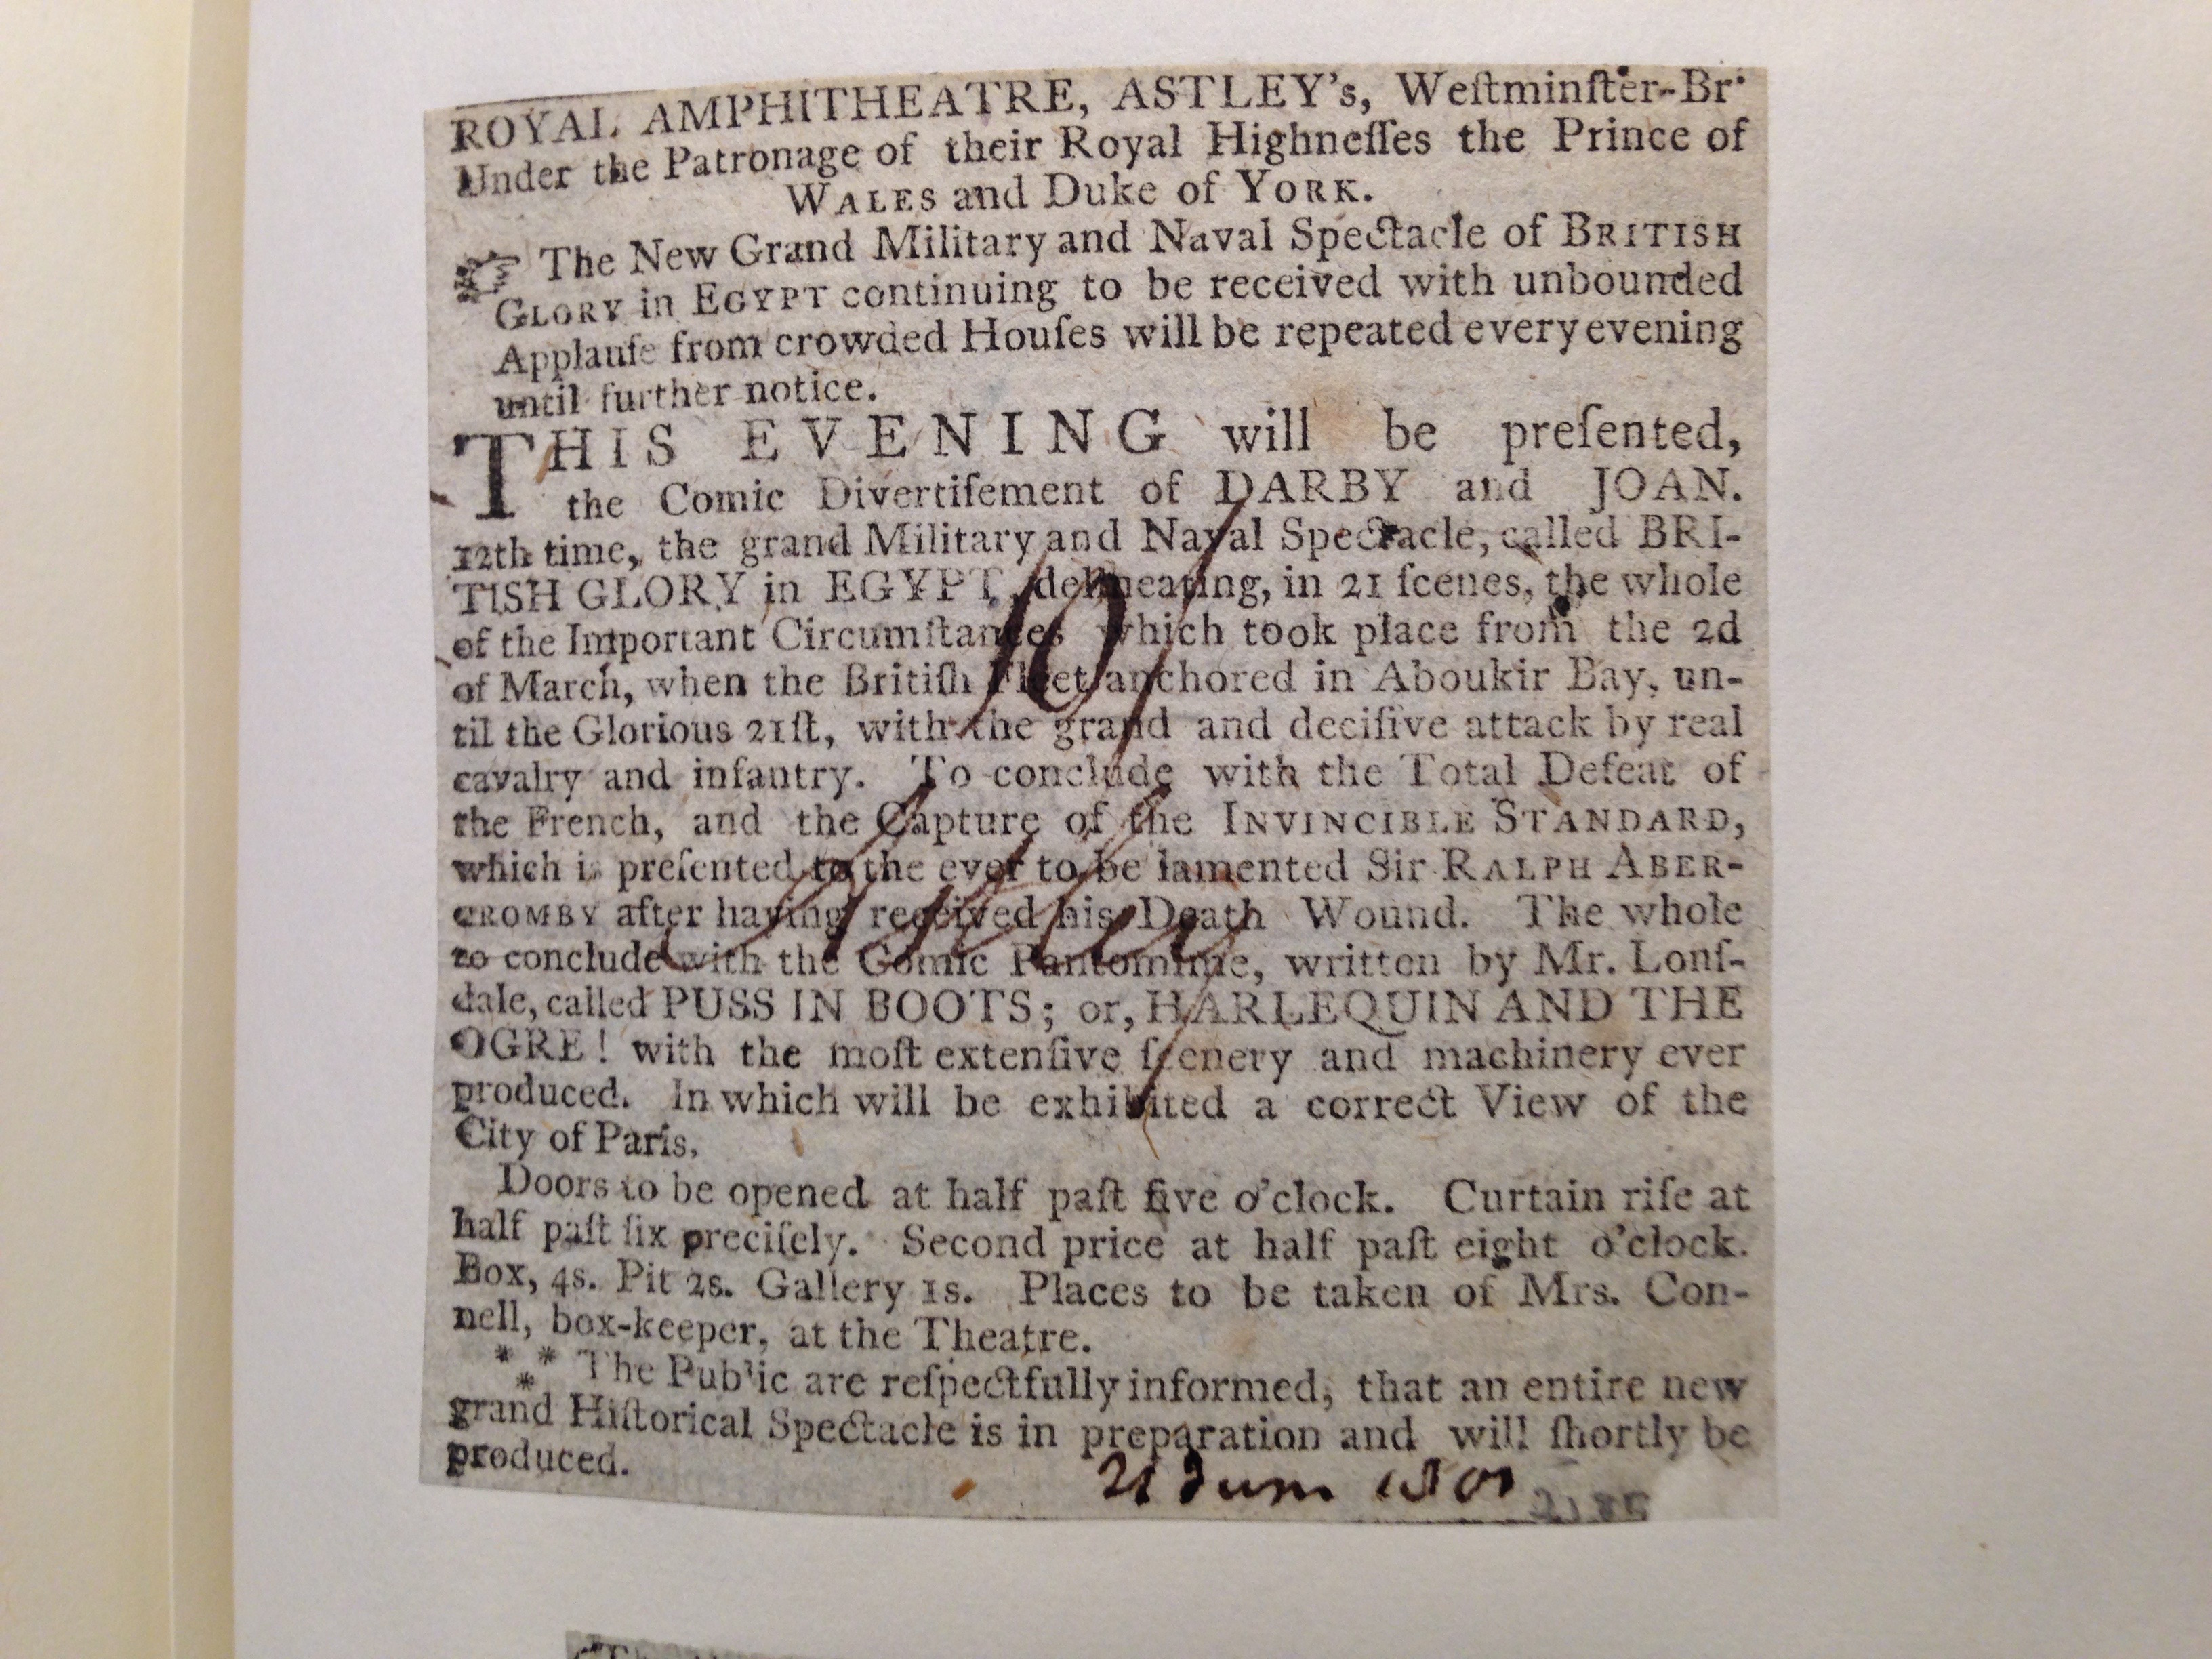 ROYAL AMPHITHEATRE, ASTLEY's, Weſtminſter-Br·
Under the Patronage of their Royal Highneſſes the Prince of
WALES and Duke of YORK.
☞ The New Grand Military and Naval Spectacle of BRITISH
GLORY in EGYPT continuing to be received with unbounded
Applauſe from crowded Houſes will be repeated every evening
until further notice.
THIS EVENING will be preſented,
the Comic Divertiſement of DARBY and JOAN.
12th time, the grand Military and Naval Spectacle, called BRI-
TISH GLORY in EGYPT, delineating, in 21 ſcenes, the whole
of the Important Circumſtances which took place from the 2d
of March, when the Britiſh Fleet anchored in Aboukir Bay, un-
til the Glorious 21ſt, with the grand and deciſive attack by real
cavalry and infantry. To conclude with the Total Defeat of
the French, and the Capture of the INVINCIBLE STANDARD,
which is preſented to the ever to be lamented Sir RALPH ABER-
CROMBY after having received his Death Wound. The whole
to conclude with the Comic Pantomime, written by Mr. Lonſ-
dale, called PUSS IN BOOTS; or, HARLEQUIN AND THE
OGRE! with the moſt extenſive ſcenery and machinery ever
produced. In which will be exhibited a correct View of the
City of Paris.
Doors to be opened at half paſt five o'clock. Curtain riſe at
half paſt ſix preciſely. Second price at half paſt eight o'clock.
Box, 4s. Pit 2s. Gallery 1s. Places to be taken of Mrs. Con-
nell, box-keeper, at the Theatre.
*** The Public are reſpectfully informed, that an entire new
grand Hiſtorical Spectacle is in preparation and will ſhortly be
produced.
21 1801